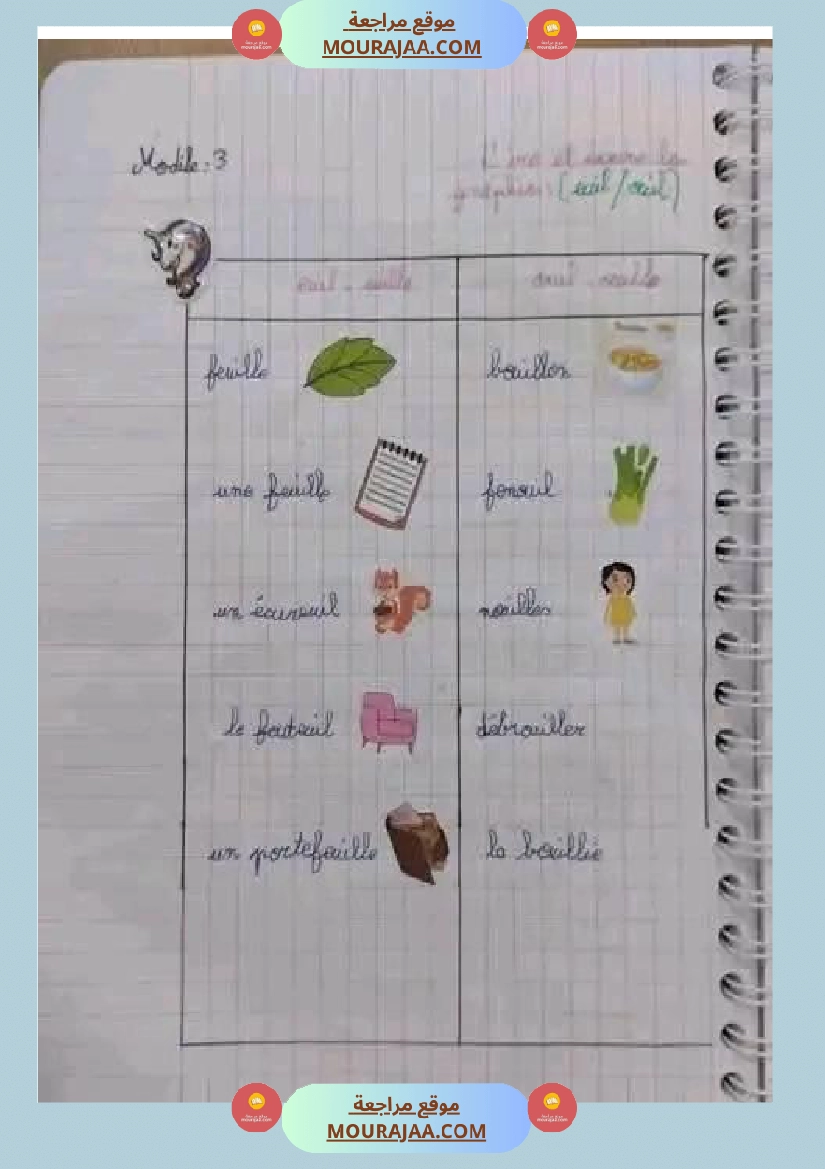 موقع مراجعة
MOURAJAA.COM
Module: 3
Lire et écrire la
graphie: (euil/œil)
euil - euille
ouil - ouille
feuille
bouillon
une feuille
fenouil
un écureuil
nouilles
le fauteuil
débrouiller
un portefeuille
la bouillie
موقع مراجعة
MOURAJAA.COM